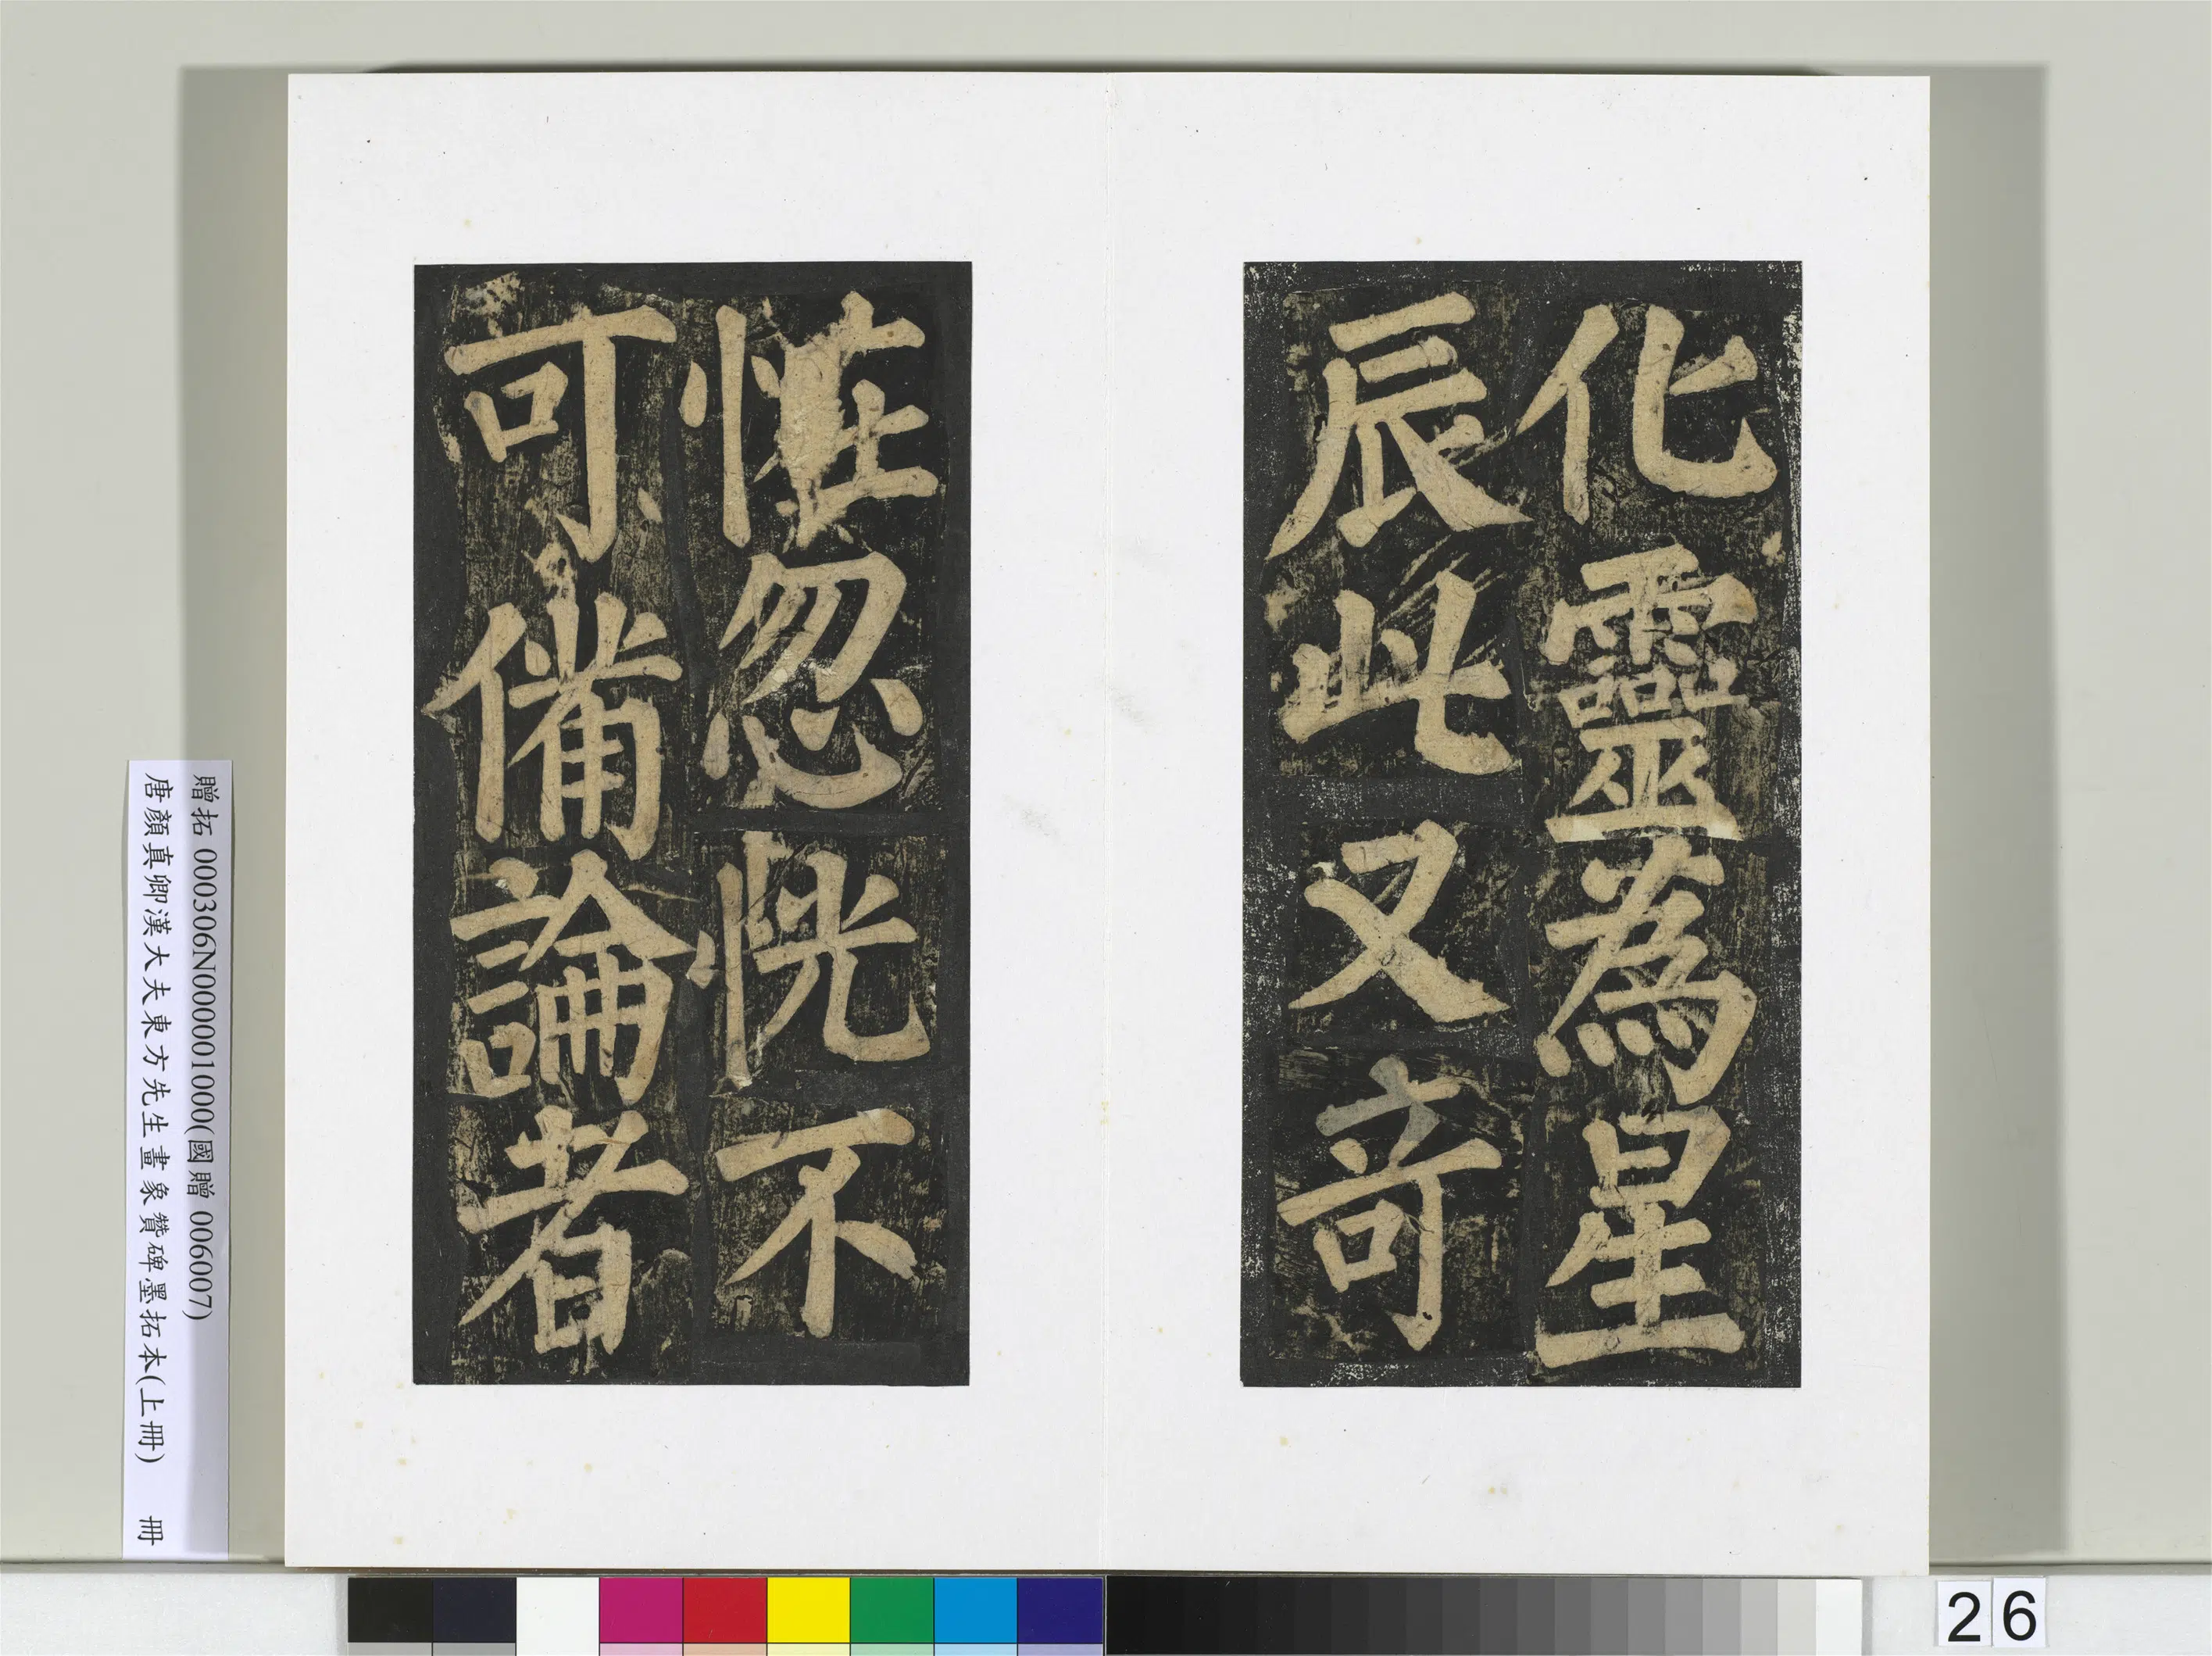 化靈為星
辰此又竒
恠忽恍不
可備論者
贈拓 000306N000001000(國贈 006007)
唐顏真卿漢大夫東方先生畫象贊碑墨拓本(上冊) 冊
26